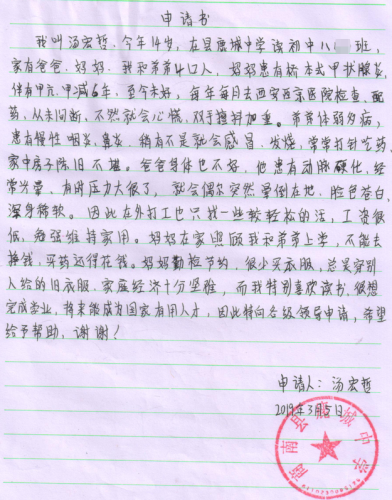 申请书
我叫汤宏哲,今年14岁,在县鹿城中学读初中八 班,
家有爸爸、妈妈、我和弟弟4口人,妈妈患有桥本式甲状腺炎
伴有甲亢、甲减6年,至今未好,每年每月去西安西京医院检查、配
药,从未间断,不然就会心慌、双手抖加重。弟弟体弱多病,
患有慢性咽炎、鼻炎,稍有不是就会感冒、发烧,常常打针吃药
家中房子陈旧不堪。爸爸身体也不好,他患有动脉硬化,经
常头晕,有时压力大很了,就会偶尔突然晕倒在地,脸色苍白,
浑身稀软。因此在外打工也只找一些较轻松的活,工资很
低,勉强维持家用。妈妈在家照顾我和弟弟上学,不能去
挣钱,买药还得花钱。妈妈勤俭节约,很少买衣服,总是穿别
人给的旧衣服,家庭经济十分坚难,而我特别喜欢读书,很想
完成学业,将来能成为国家有用人才,因此特向各级领导申请,希望
给予帮助,谢谢!
申请人:汤宏哲
2019年3月5日
商南县鹿城中学